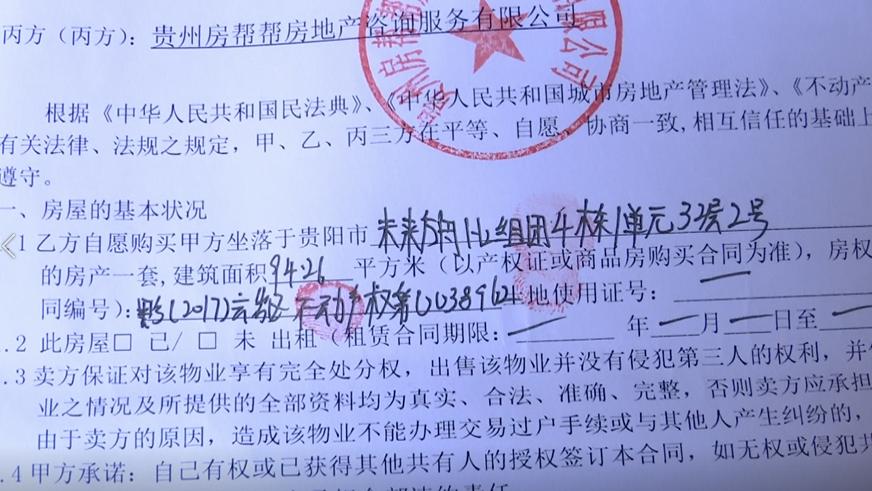 丙方（丙方）：贵州房帮帮房地产咨询服务有限公司
根据《中华人民共和国民法典》、《中华人民共和国城市房地产管理法》、《不动产
有关法律、法规之规定，甲、乙、丙三方在平等、自愿、协商一致,相互信任的基础上
遵守。
一、房屋的基本状况
1 乙方自愿购买甲方坐落于贵阳市 未来方舟H2组团4栋1单元32层2号
的房产一套,建筑面积94.26平方米（以产权证或商品房购买合同为准），房权
同编号）：黔(2017)云岩区不动产权第 土地使用证号：
.2 此房屋□ 已/ □ 未 出租（租赁合同期限： 年 月 日至
.3 卖方保证对该物业享有完全处分权，出售该物业并没有侵犯第三人的权利，并
业之情况及所提供的全部资料均为真实、合法、准确、完整，否则卖方应承担
由于卖方的原因，造成该物业不能办理交易过户手续或与其他人产生纠纷的，
.4 甲方承诺：自己有权或已获得其他共有人的授权签订本合同，如无权或侵犯共